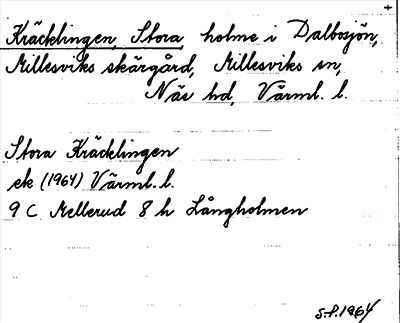 Kräcklingen, Stora, holme i Dalbosjön,
Millesviks skärgård, Millesviks sn,
Näs hd, Värml. l.
Stora Kräcklingen
ek (1964) Värml. l.
9 C Mellerud 8 h Långholmen
S.P. 1964